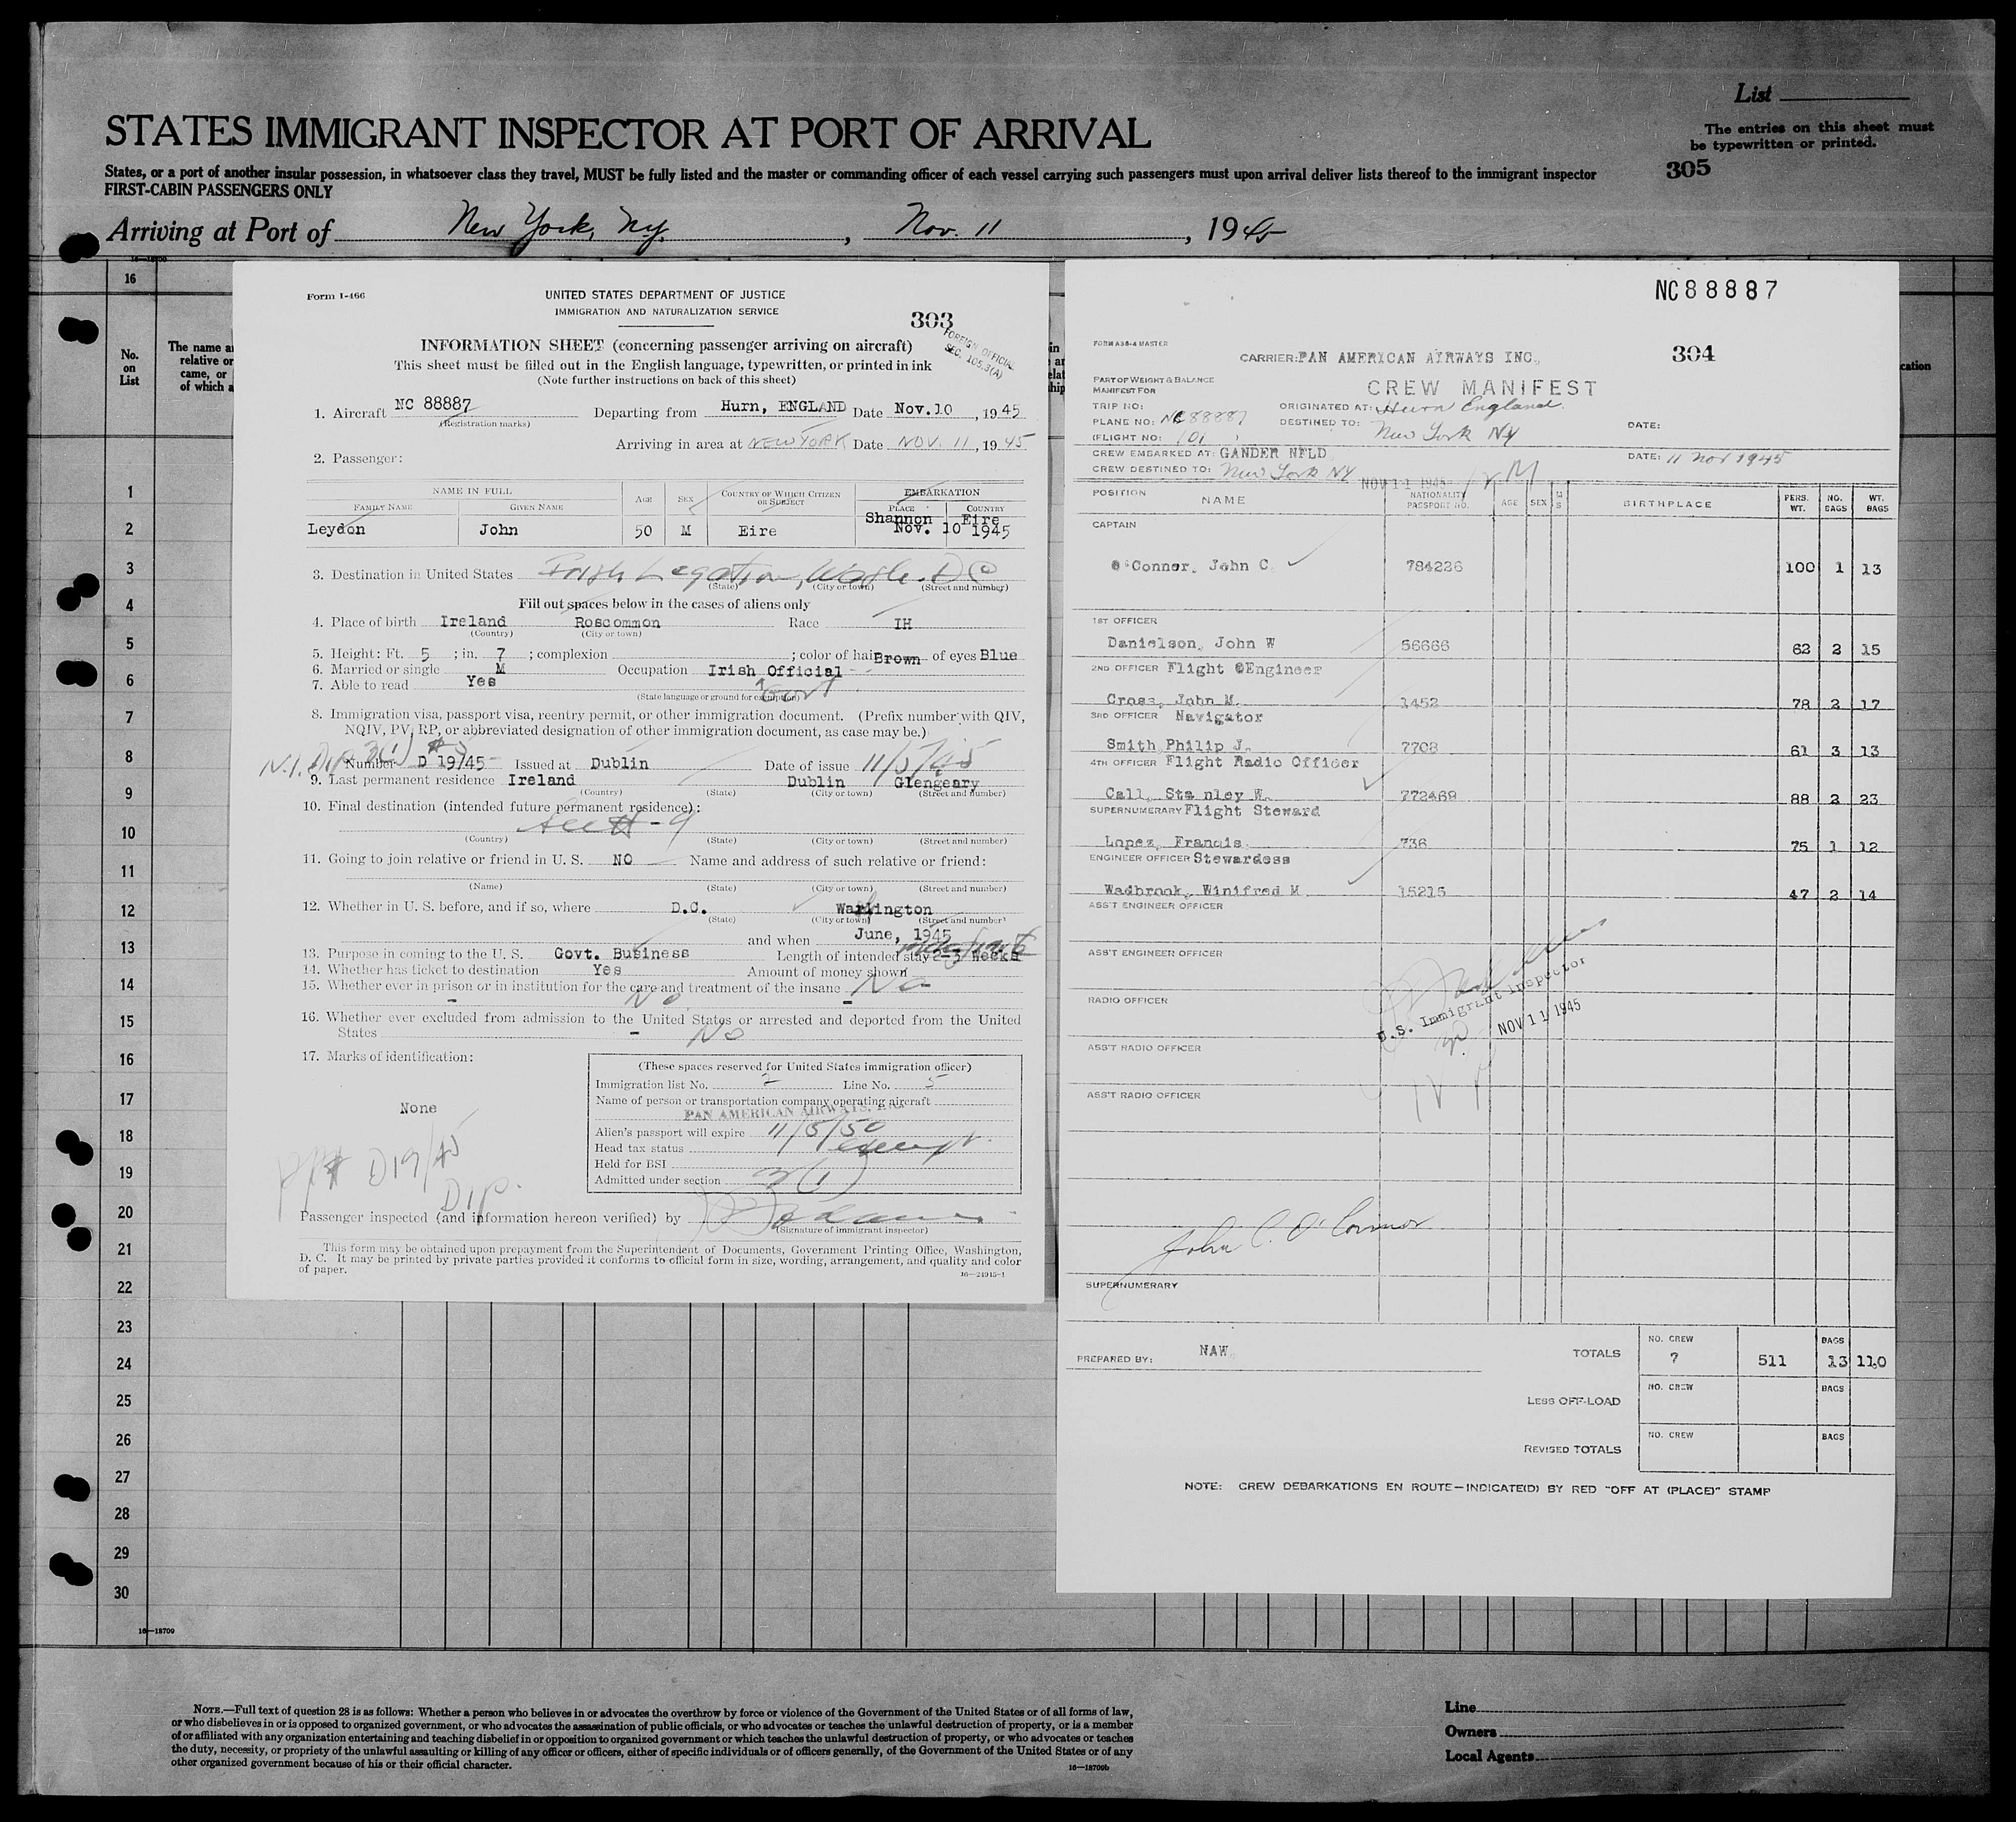 List
STATES IMMIGRANT INSPECTOR AT PORT OF ARRIVAL
The entries on this sheet must
be typewritten or printed.
States, or a port of another insular possession, in whatsoever class they travel, MUST be fully listed and the master or commanding officer of each vessel carrying such passengers must upon arrival deliver lists thereof to the immigrant inspector
305
FIRST-CABIN PASSENGERS ONLY
Arriving at Port of New York, Ny. , Nov. 11 , 1945
16
No.
on
List
The name a
relative or
came, or
of which a
1
2
3
4
5
6
7
8
9
10
11
12
13
14
15
16
17
18
19
20
21
22
23
24
25
26
27
28
29
30
16—18709
Form I-466
UNITED STATES DEPARTMENT OF JUSTICE
IMMIGRATION AND NATURALIZATION SERVICE
303
FOREIGN OFFICIAL
SEC. 105.3(A)
INFORMATION SHEET (concerning passenger arriving on aircraft)
This sheet must be filled out in the English language, typewritten, or printed in ink
(Note further instructions on back of this sheet)
1. Aircraft NC 88887 Departing from Hurn, ENGLAND Date Nov.10 , 1945
(Registration marks)
Arriving in area at NEW YORK Date NOV. 11, 1945
2. Passenger:
NAME IN FULL AGE SEX COUNTRY OF WHICH CITIZEN OR SUBJECT EMBARKATION
FAMILY NAME GIVEN NAME PLACE COUNTRY
Leydon John 50 M Eire Shannon Eire
Nov. 10 1945
3. Destination in United States Irish Legation, Wash. DC
(State) (City or town) (Street and number)
Fill out spaces below in the cases of aliens only
4. Place of birth Ireland Roscommon Race IH
(Country) (City or town)
5. Height: Ft. 5 ; in. 7 ; complexion ; color of hair Brown of eyes Blue
6. Married or single M Occupation Irish Official
Govt
7. Able to read Yes
(State language or ground for exemption)
8. Immigration visa, passport visa, reentry permit, or other immigration document. (Prefix number with QIV,
NQIV, PV, RP, or abbreviated designation of other immigration document, as case may be.)
N.I. Dip 3(1)
Number D 19/45 Issued at Dublin Date of issue 11/5/45
9. Last permanent residence Ireland Dublin Glengeary
(Country) (State) (City or town) (Street and number)
10. Final destination (intended future permanent residence):
(Country) (State) (City or town) (Street and number)
11. Going to join relative or friend in U. S. NO Name and address of such relative or friend:
(Name) (State) (City or town) (Street and number)
12. Whether in U. S. before, and if so, where D.C. Warlington
(State) (City or town) (Street and number)
and when June, 1945
13. Purpose in coming to the U. S. Govt. Business Length of intended stay 2-3 Weeks
14. Whether has ticket to destination Yes Amount of money shown
15. Whether ever in prison or in institution for the care and treatment of the insane No
No
16. Whether ever excluded from admission to the United States or arrested and deported from the United
States - No
17. Marks of identification:
None
PP# D19/45
Dip.
(These spaces reserved for United States immigration officer)
Immigration list No. 2 Line No. 5
Name of person or transportation company operating aircraft
PAN AMERICAN AIRWAYS, INC.
Alien's passport will expire 11/5/50
Head tax status exempt
Held for BSI
Admitted under section 3(1)
Passenger inspected (and information hereon verified) by
(Signature of immigrant inspector)
This form may be obtained upon prepayment from the Superintendent of Documents, Government Printing Office, Washington,
D. C. It may be printed by private parties provided it conforms to official form in size, wording, arrangement, and quality and color
of paper.
16—24915-1
NC88887
FORM A38-4 MASTER
CARRIER: PAN AMERICAN AIRWAYS INC.,
304
PART OF WEIGHT & BALANCE
MANIFEST FOR
CREW MANIFEST
TRIP NO:
ORIGINATED AT: Hurn England.
PLANE NO: NC88887
DESTINED TO: New York NY
DATE:
(FLIGHT NO: 101 )
CREW EMBARKED AT: GANDER NFLD
DATE: 11 Nov 1945
CREW DESTINED TO: New York NY
NOV 11 1945
POSITION NAME NATIONALITY PASSPORT NO. AGE SEX M S BIRTHPLACE PERS. WT. NO. BAGS WT. BAGS
CAPTAIN
O'Conner, John C. 784226 100 1 13
1ST OFFICER
Danielson, John W 56666 62 2 15
2ND OFFICER Flight @Engineer
Cross, John M. 1452 78 2 17
3RD OFFICER Navigator
Smith Philip J. 7708 61 3 13
4TH OFFICER Flight Radio Officer
Call, Sta nley W. 772469 88 2 23
SUPERNUMERARY Flight Steward
Lopez, Francis. 736 75 1 12
ENGINEER OFFICER Stewardess
Wadbrook, Winifred M. 15215 47 2 14
ASS'T ENGINEER OFFICER
ASS'T ENGINEER OFFICER
RADIO OFFICER
U.S. Immigrant Inspector
NOV 11 1945
ASS'T RADIO OFFICER
ASS'T RADIO OFFICER
John C. O'Connor
SUPERNUMERARY
PREPARED BY: NAW.
TOTALS NO. CREW 7 511 BAGS 13 110
LESS OFF-LOAD NO. CREW BAGS
REVISED TOTALS NO. CREW BAGS
NOTE: CREW DEBARKATIONS EN ROUTE—INDICATE(D) BY RED "OFF AT (PLACE)" STAMP
NOTE.—Full text of question 28 is as follows: Whether a person who believes in or advocates the overthrow by force or violence of the Government of the United States or of all forms of law,
or who disbelieves in or is opposed to organized government, or who advocates the assassination of public officials, or who advocates or teaches the unlawful destruction of property, or is a member
of or affiliated with any organization entertaining and teaching disbelief in or opposition to organized government or which teaches the unlawful destruction of property, or who advocates or teaches
the duty, necessity, or propriety of the unlawful assaulting or killing of any officer or officers, either of specific individuals or of officers generally, of the Government of the United States or of any
other organized government because of his or their official character.
16—18709b
Line
Owners
Local Agents